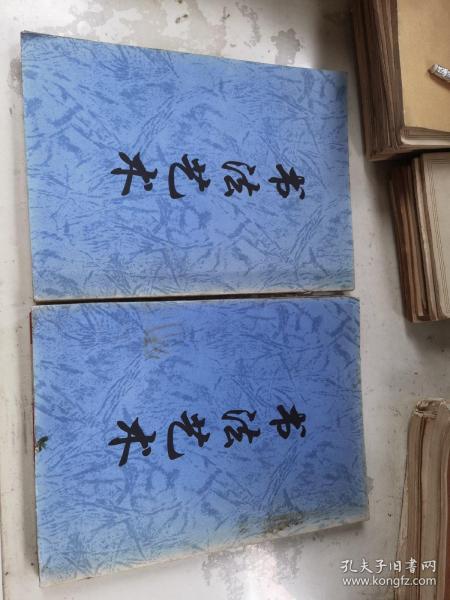 书法艺术
书法艺术
孔夫子旧书网
www.kongfz.com